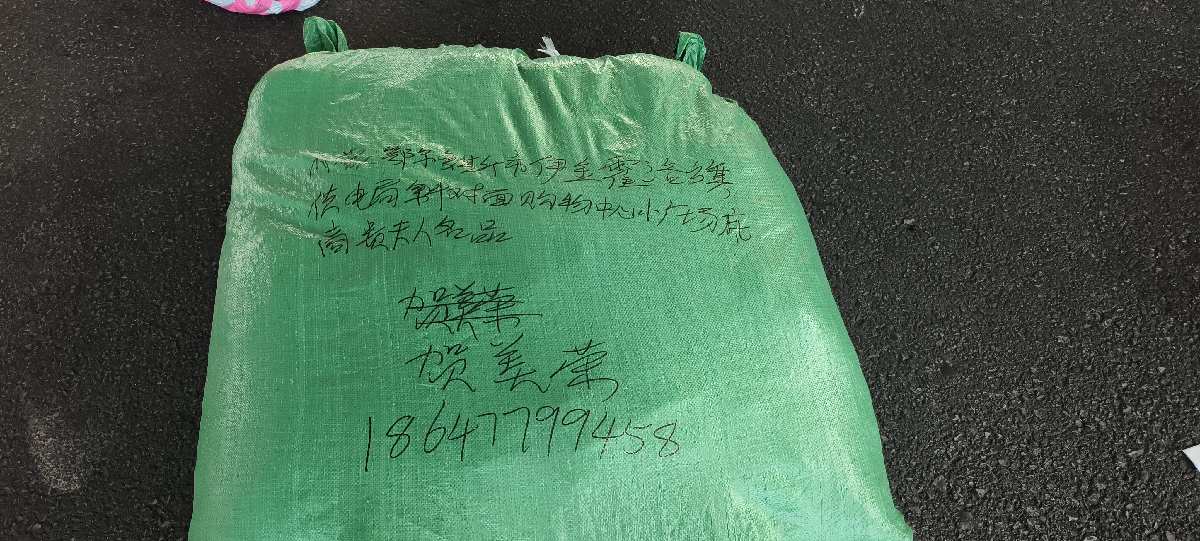 内蒙鄂尔多斯市伊金霍洛旗
供电局斜对面购物中心小广场底
商贵夫人名品
贺美荣
18647799458